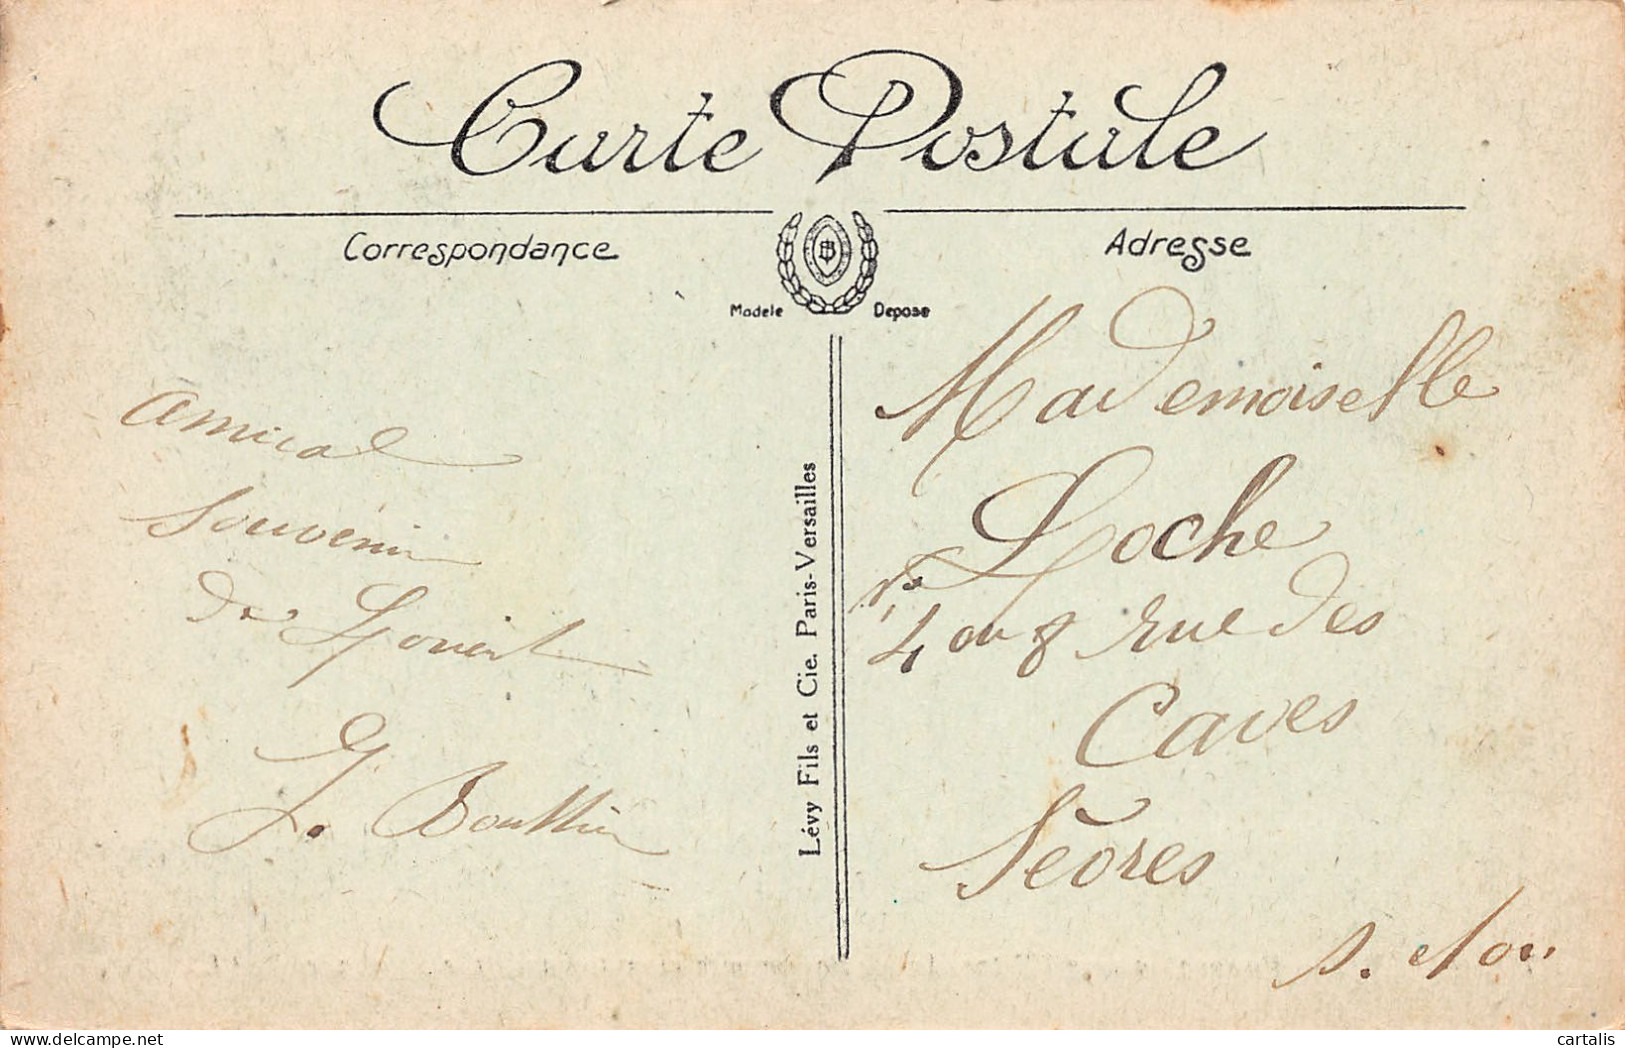 Carte Postale
Correspondance
Adresse
Modele Depose
Lévy Fils et Cie. Paris-Versailles
amical
souvenir
de
G.
Mademoiselle
Loche
4 ou 8 rue des
Caves
Sèvres
S. et Ou
cartalis